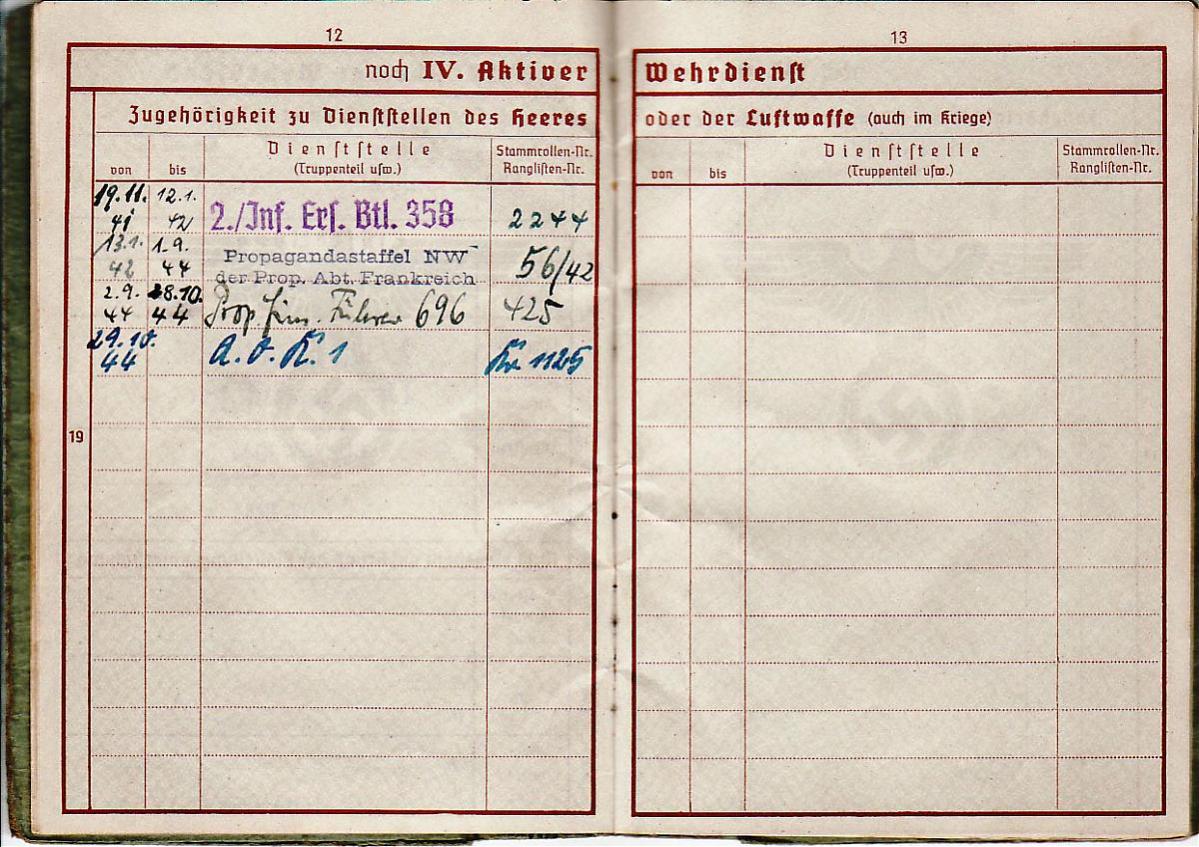 12
noch IV. Aktiver
Zugehörigkeit zu Dienststellen des Heeres
von bis Dienststelle (Truppenteil usw.) Stammrollen-Nr. Ranglisten-Nr.
19.11. 41 12.1. 42 2./Inf. Ers. Btl. 358 2244
13.1. 42 1.9. 44 Propagandastaffel NW 56/42
der Prop. Abt. Frankreich
2.9. 44 28.10. 44 Prop Führer 696 425
29.10. 44 A.O.K. 1 Kr 1125
19
13
Wehrdienst
oder der Luftwaffe (auch im Kriege)
von bis Dienststelle (Truppenteil usw.) Stammrollen-Nr. Ranglisten-Nr.